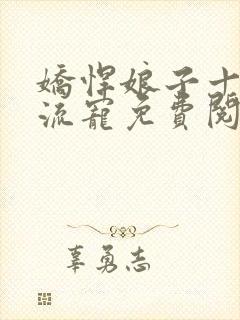 嬌悍娘子十
流寵免費閱
辜勇志